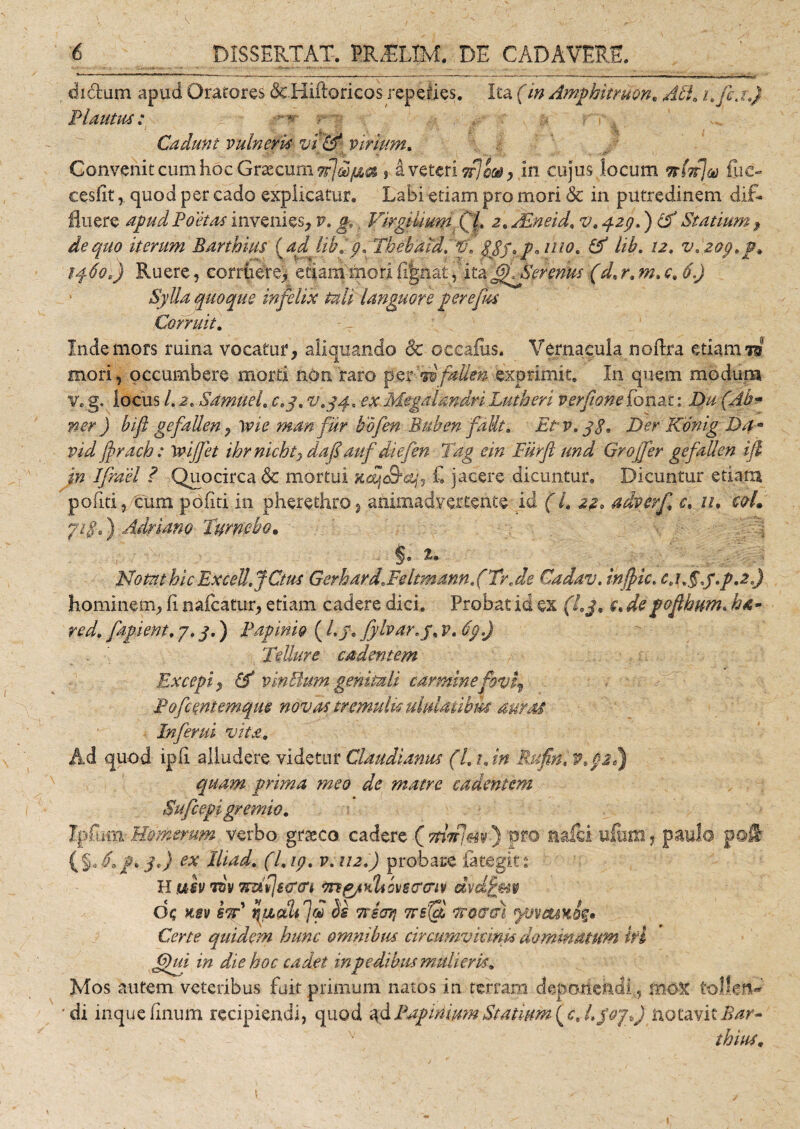 6 DISSERTAT. PRÆLIM. DE CADAVERE.
dictum apud Oratores & Historicos repeties. Ita (in Amphitruon. Act. 1. sc. 1.)
Plautus:
Cadunt vulneris vi & virium.
Convenit cum hoc Græcum πτῶμα, à veteri πτόω, in cujus locum πίπτω suc-
cesfit, quod per cado explicatur. Labi etiam pro mori & in putredinem dif-
fluere apud Poëtas invenies, v. g. Virgilium (l. 2. Æneid. v. 429.) & Statium,
de quo iterum Barthius (ad lib. 9. Thebaïd. v. p. 1110. & lib. 12. v. 209. p.
1460.) Ruere, corruere, etiam mori signat, ita Q. Serenus (d. r. m. c. 6.)
Sylla quoque infelix tali languore peresus
Corruit.
Inde mors ruina vocatur, aliquando & occasus. Vernacula nostra etiam τὸ
mori, occumbere morti non raro per τὸ fallen exprimit. In quem modum
v. g. locus l. 2. Samuel. c. 3. v. 34. ex Megalandri Lutheri versione sonat: Du (Ab-
ner) bist gefallen, wie man für bösen Buben fällt. Et v. 38. Der König Da-
vid sprach: wisset ihr nicht, daß auf diesen Tag ein Fürst und Grosser gefallen ist
in Israël? Quocirca & mortui κεῖσθαι, s. jacere dicuntur. Dicuntur etiam
positi, cum positi in pherethro, animadvertente id (l. 22. advers. c. 11. col.
718.) Adriano Turnebo.
§. 2.
Notat hic Excell. JCtus Gerhard. Feltmann. (Tr. de Cadav. inspic. c. 1. §. 5. p. 2.)
hominem, si nascatur, etiam cadere dici. Probat id ex (l. 3. c. de posthum. hæ-
red. sapient. 7. 3.) Papinio (l. 5. sylvar. 5. v. 69.)
Tellure cadentem
Excepi, & vinctum genitali carmine fovi,
Poscentemque novas tremulis ululatibus auras
Inserui vitæ.
Ad quod ipsi alludere videtur Claudianus (l. 1. in Rufin. v. 92.)
quam prima meo de matre cadentem
Suscepi gremio.
Ipsum Homerum verbo græco cadere (πίπτειν) pro nasci usum, paulo post
(§. 6. p. 3.) ex Iliad. (l. 19. v. 112.) probare sategit:
Η μὲν τὸν πάντεσσι περικλιόνεσσιν ἀνάξειν
Ος κεν ἐπ' ἤματι τῷ δε πέσῃ μετὰ ποσσὶ γυναικὸς.
Certe quidem hunc omnibus circumvicinis dominatum iri
Qui in die hoc cadet in pedibus mulieris.
Mos autem veteribus fuit primum natos in terram deponendi, mox tollen-
di inque sinum recipiendi, quod ad Papinium Statium (c. l. 507.) notavit Bar-
thius.